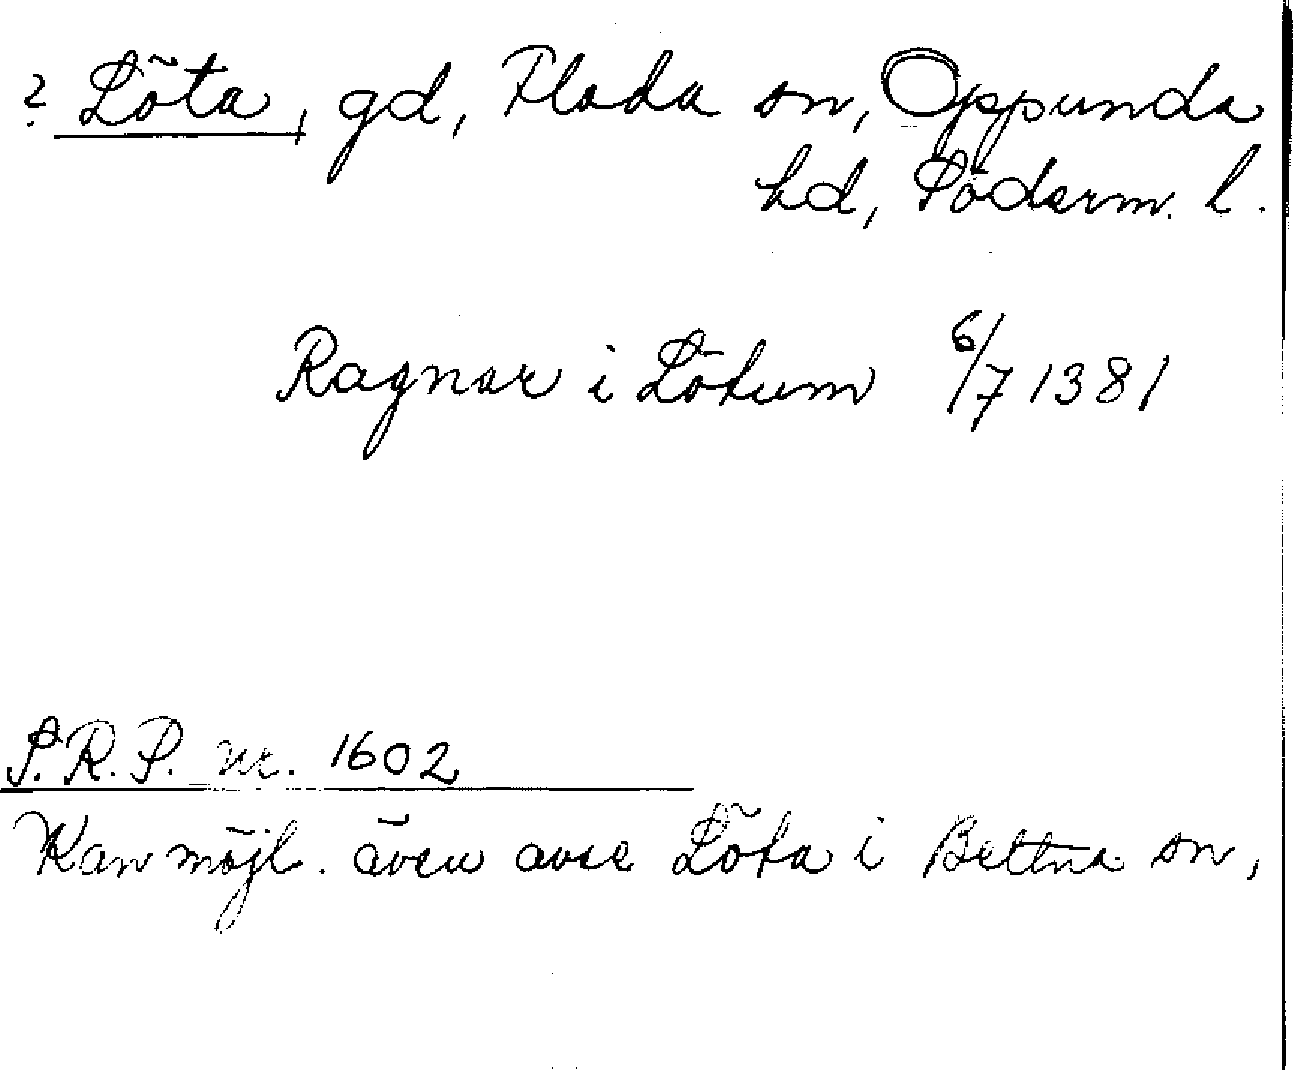 ? Löta, gd, Floda sn, Oppunda
hd, Söderm. l.
Ragnar i Lötum 6/7 1381
S.R.P. nr. 1602
Kan möjl. även avse Löta i Bettna sn,